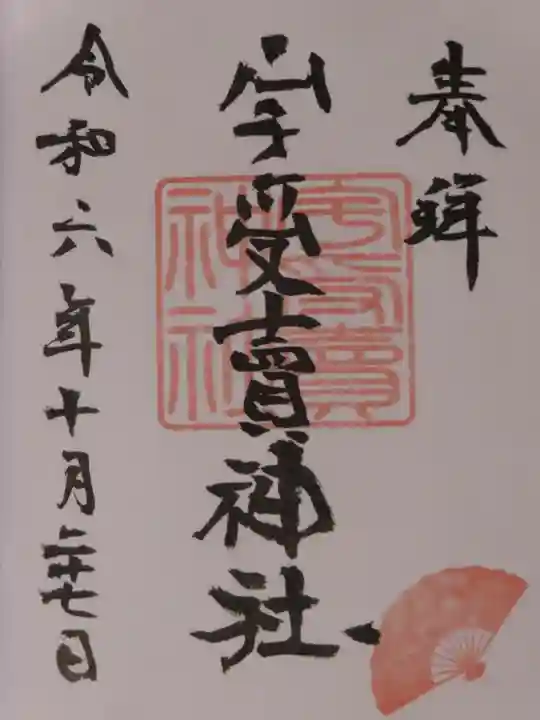 奉拝
宇受賣神社
宇受賣
神社
令和六年十月二十七日